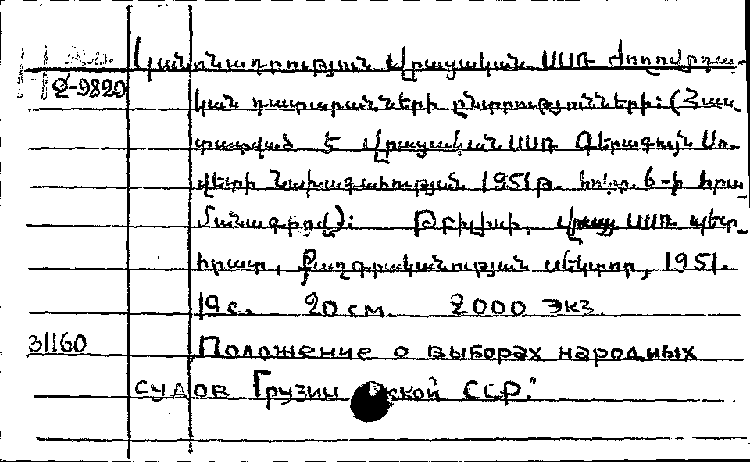 Կանոնադրություն Վրացական ՍՍՌ ժողովրդա-
Զ-9820
կան դատարանների ընտրությունների: (Հաս-
տատված է Վրացական ՍՍՌ Գերագույն Սո-
վետի Նախագահության 1951թ. հոկտ. 6-ի հրա-
մանագրով): Թբիլիսի, Վրաց ՍՍՌ պետ-
հրատ, Քաղգրականության սեկտոր, 1951.
19 с. 20 см. 2000 экз.
31160
Положение о выборах народных
судов Грузинской ССР."